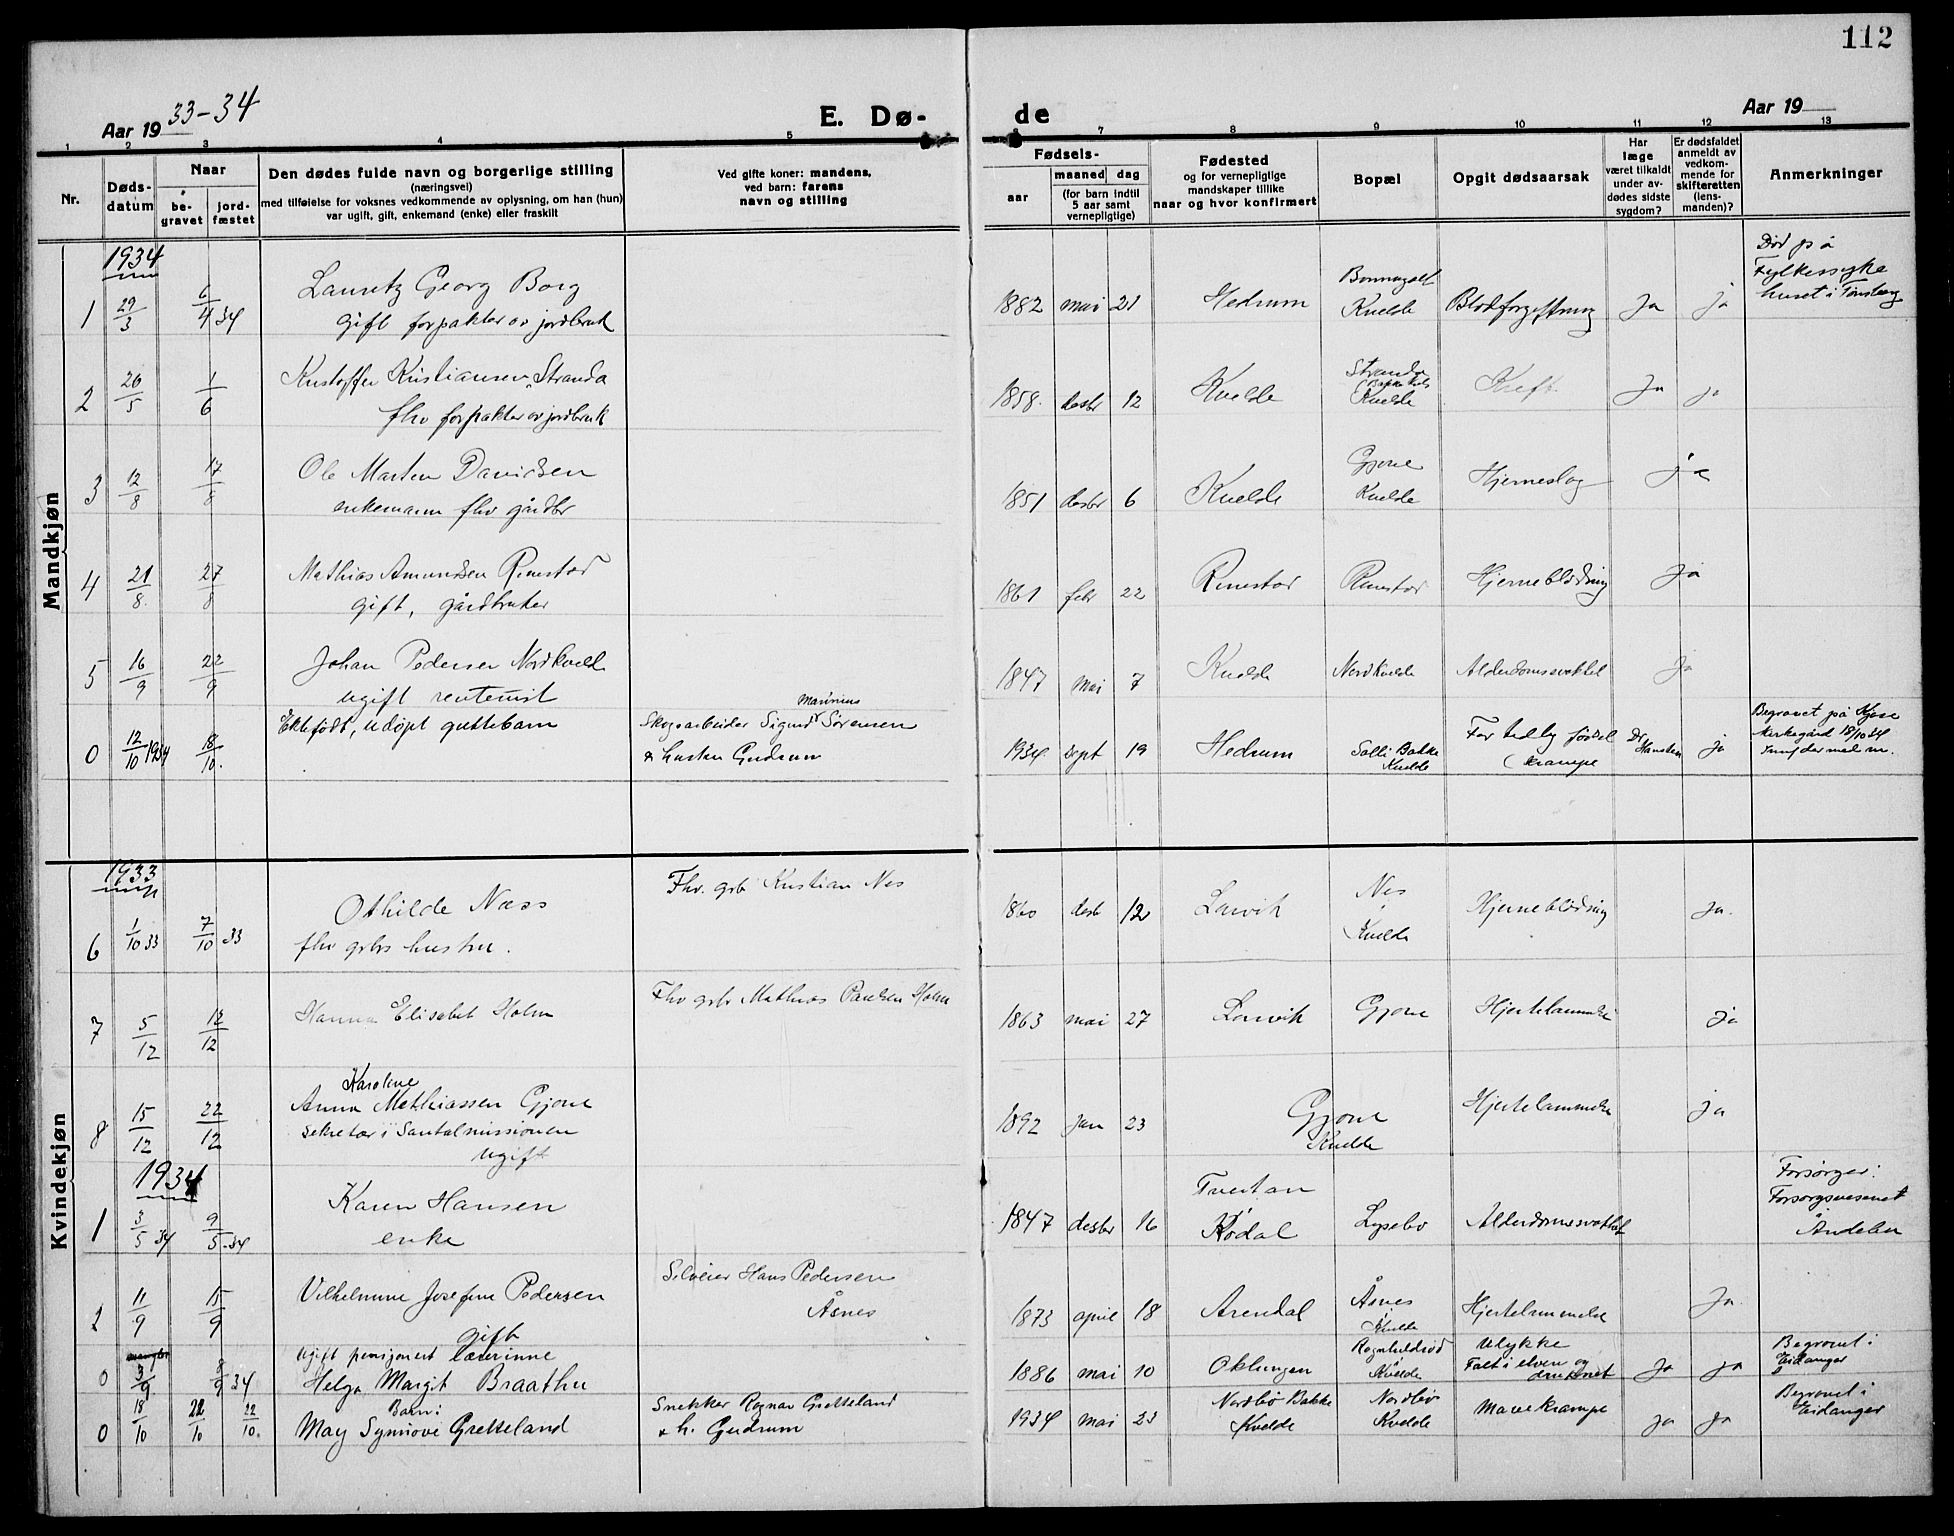 112
Aar 1933-34
E. Dø-
de
Aar 19
1 2 3 4 5 6 7 8 9 10 11 12 13
Nr.
Døds-
datum
Naar
be-
gravet
jord-
fæstet
Den dødes fulde navn og borgerlige stilling
(næringsvei)
med tilføielse for voksnes vedkommende av oplysning, om han (hun)
var ugift, gift, enkemand (enke) eller fraskilt
Ved gifte koner: mandens,
ved barn: farens
navn og stilling
Fødsels-
aar
maaned dag
(for barn indtil
5 aar samt
vernepligtige)
Fødested
og for vernepligtige
mandskaper tillike
naar og hvor konfirmert
Bopæl
Opgit dødsaarsak
Har
læge
været tilkaldt
under av-
dødes sidste
sygdom?
Er dødsfaldet
anmeldt av
vedkom-
mende for
skifteretten
(lens-
manden)?
Anmerkninger
Mandkjøn
1934
1 29/3 6/4 34 Lauritz Georg Borg
gift forpakter av jordbruk
1882 mai 21 Hedrum
Kvelde Blodforgiftning Ja ja
Død på
Fylkessyke
huset i Tønsberg
2 26/5 1/6 Kristoffer Kristiansen Stranda
fhv forpakter av jordbruk
1858 desbr 12 Kvelde Stranda
Kvelde Kreft Ja ja
3 12/8 17/8 Ole Martin Davidsen
enkemann fhv gårdbr
1851 desbr 6 Kvelde Gjone
Kvelde Hjerneslag ja
4 21/8 27/8 Mathias Amundsen Rimstad
gift, gårdbruker
1861 febr 22 Rimstad Rimstad Hjerneblødning Ja
5 16/9 22/9 Johan Pedersen Nordkvelde
ugift rentenist
1847 mai 7 Kvelde Nordkvelde Alderdomssvakhet Ja
0 12/10 1934 18/10 Ektefødt, udøpt guttebarn
Marinius
Skogsarbeider Sigurd Sørensen
& hustru Gudrun
1934 sept 19 Hedrum Solli Bakke
Kvelde For tidlig fødsel
(krampe Dr
Hansten ja
Begravet på Kjose
kirkegård 18/10 34
Kvindekjøn
1933
6 1/10 33 7/10 33 Othilde Næss
fhv gbrs hustru.
Fhv. gbr Kristian Nes
1860 desb 12 Larvik Nes
i
Kvelde Hjerneblødning Ja.
7 5/12 12/12 Hanna Elisabet Holm
Fhv gbr Mathias Paulsen Holm
1863 mai 27 Larvik Gjone Hjertelammelse ja
8 15/12 22/12 Karoline
Anna Mathiassen Gjone
sekretær i Santalmissionen
ugift
1892 jan 23 Gjone
Kvelde Hjertelammelse Ja
1934
1 3/5 34 9/5-34 Karen Hansen
enke
1847 desbr 16 Tveitan
i
Kodal Lysebo Alderdomssvakhet
Forsørger:
Forsorgsvesenet
Andebu
2 11/9 15/9 Vilhelmine Josefine Pedersen
gift
Seilveier Hans Pedersen
Åsnes
1873 april 18 Arendal Åsnes
i
Kvelde Hjertelammelse Ja.
0 3/9 8/9 34 ugift pensjonert lærerinne
Helga Margit Braathu
1886 mai 10 Oklungen Ragnhildsrød
i
Kvelde Ulykke
Falt i elven og
druknet Ja ja
Begravet i
Eidanger
0 18/10 22/10 22/10. Barn:
May Synnøve Gretteland
Snekker Ragnar Gretteland
& h. Gudrun
1934 mai 23 Nordbø Bakke
Kvelde Nordbø
Kvelde Mavekrampe ja ja
Begravet i
Eidanger